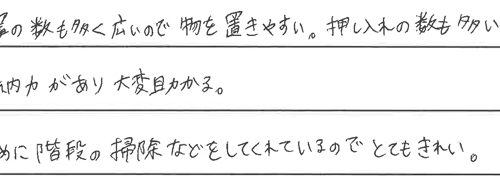 の数も多く広いので物を置きやすい。押し入れの数も多い
納力があり大変助かる。
めに階段の掃除などをしてくれているのでとてもきれい。